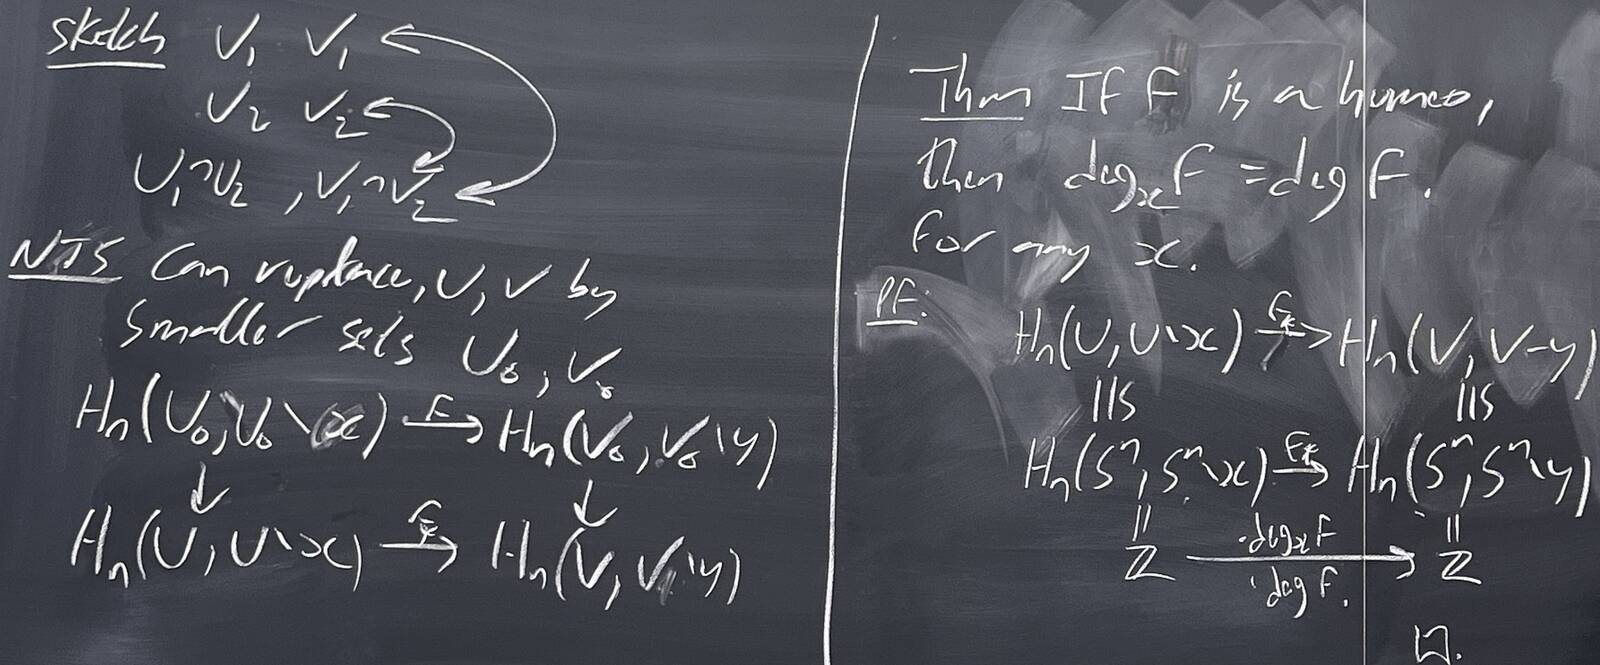 Sketch U₁ V₁
U₂ V₂
U₁∩U₂, V₁∩V₂
NTS Can replace U, V by
smaller sets U₀, V₀
Hₙ(U₀, U₀∖x) —F→ Hₙ(V₀, V₀∖y)
↓ ↓
Hₙ(U, U∖x) —F*→ Hₙ(V, V∖y)
Thm If F is a homeo,
then degₓF = deg F.
For any x.
PF:
Hₙ(U, U∖x) —F*→ Hₙ(V, V−y)
≅ ≅
Hₙ(Sⁿ, Sⁿ∖x) —F*→ Hₙ(Sⁿ, Sⁿ∖y)
= =
ℤ —·degₓF→ ℤ
·deg F.
□.